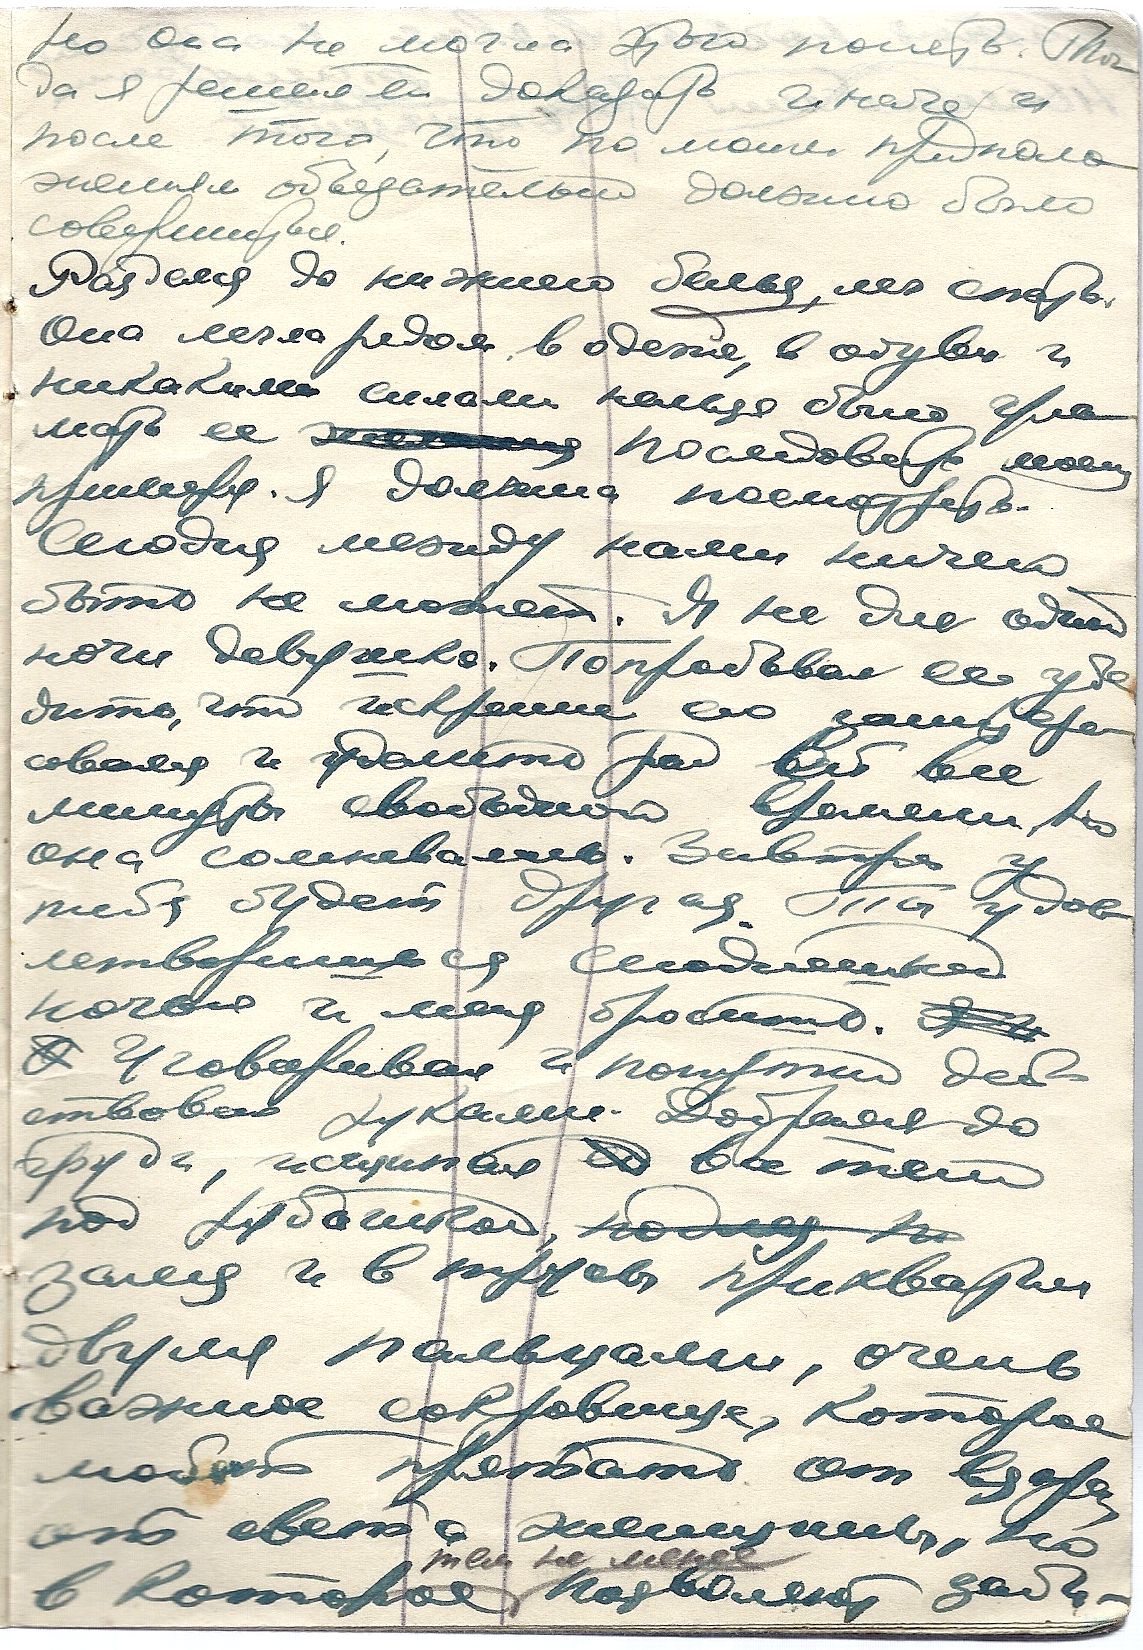 но она не могла этого понять. Тог
да я решил ей доказать иначе и
после того, что по моим предполо
жениям обязательно должно было
совершиться.
Разделся до нижнего белья, лег спать.
Она легла рядом в одежде, в обуви и
никакими силами нельзя было уло
мать ее последовать моему
примеру. Я должна посмотреть.
Сегодня между нами ничего
быть не может. Я не для одной
ночи девушка. Попробывал ее убе
дить, что искренне ею заинтере-
совался и уделить рад ей все
минуты свободного времени, но
она сомневалась. Завтра у
тебя будет другая. Ты удов
летворишься сегодняшней
ночью и меня бросишь.
Уговаривал и попутно дей-
ствовал руками. Добрался до
груди, исщипал все тело
под рубашкой, по
залез и в трусы прихватил
двумя пальцами, очень
важное сокровище, которое
любят прятать от взора
от света женщины, но
тем не менее
в которое позволяют заби-